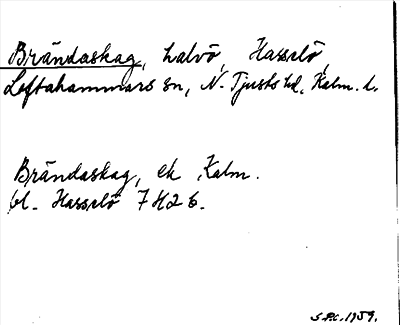 Brändaskag, halvö, Hasselö,
Loftahammars sn, N. Tjusts hd, Kalm. l.
Brändaskag, ek Kalm.
bl. Hasselö 7H2b.
S.P.C. 1959.